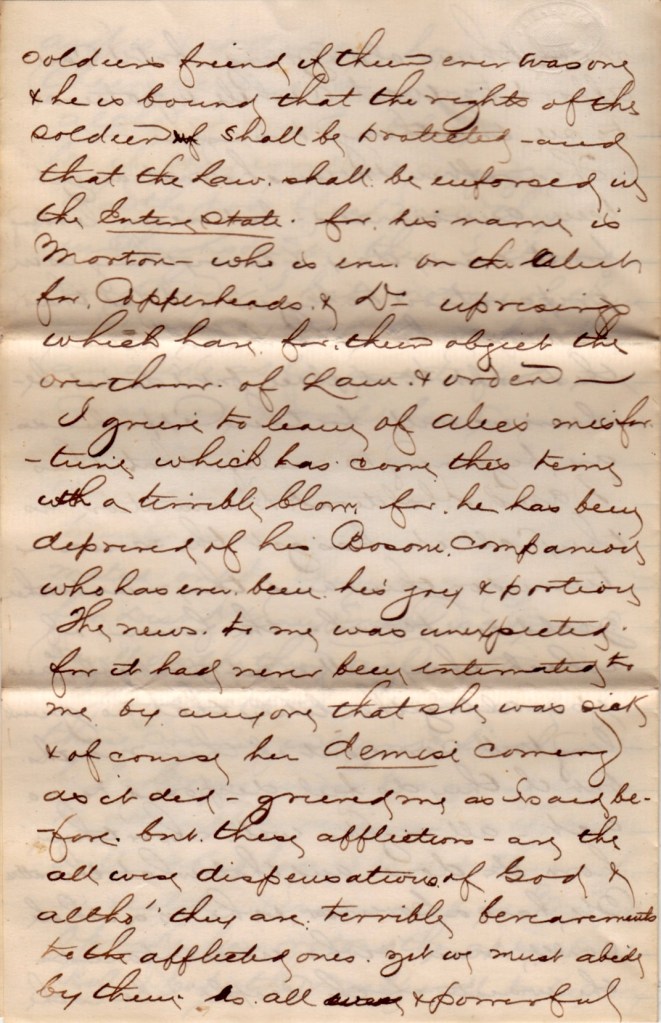 soldiers friend if there ever was one
& he is bound that the rights of the
soldier shall be protected - and
that the Law. shall be enforsed in
the Entire State. for his name is
Morton - who is ever on the Alert
for. Copperheads. & Do uprising
which have for. their object the
overthrow. of Law. & order -
I grieve to learn of Alecs misfor
-tune which has come this time
with a terrible blow. for. he has been
deprived of his Bosom. companion
who has ever. been. his joy & portion
The news. to me was unexpected.
for it had never been intimated to
me by anyone that she was sick
& of course her demise coming
as it did - grieved me as I said be-
-fore. but. these afflictions - are the
all wise dispensations of God &
altho' they are. terrible bereavements
to the afflicted ones. yet we must abide
by them. as. all & powerful